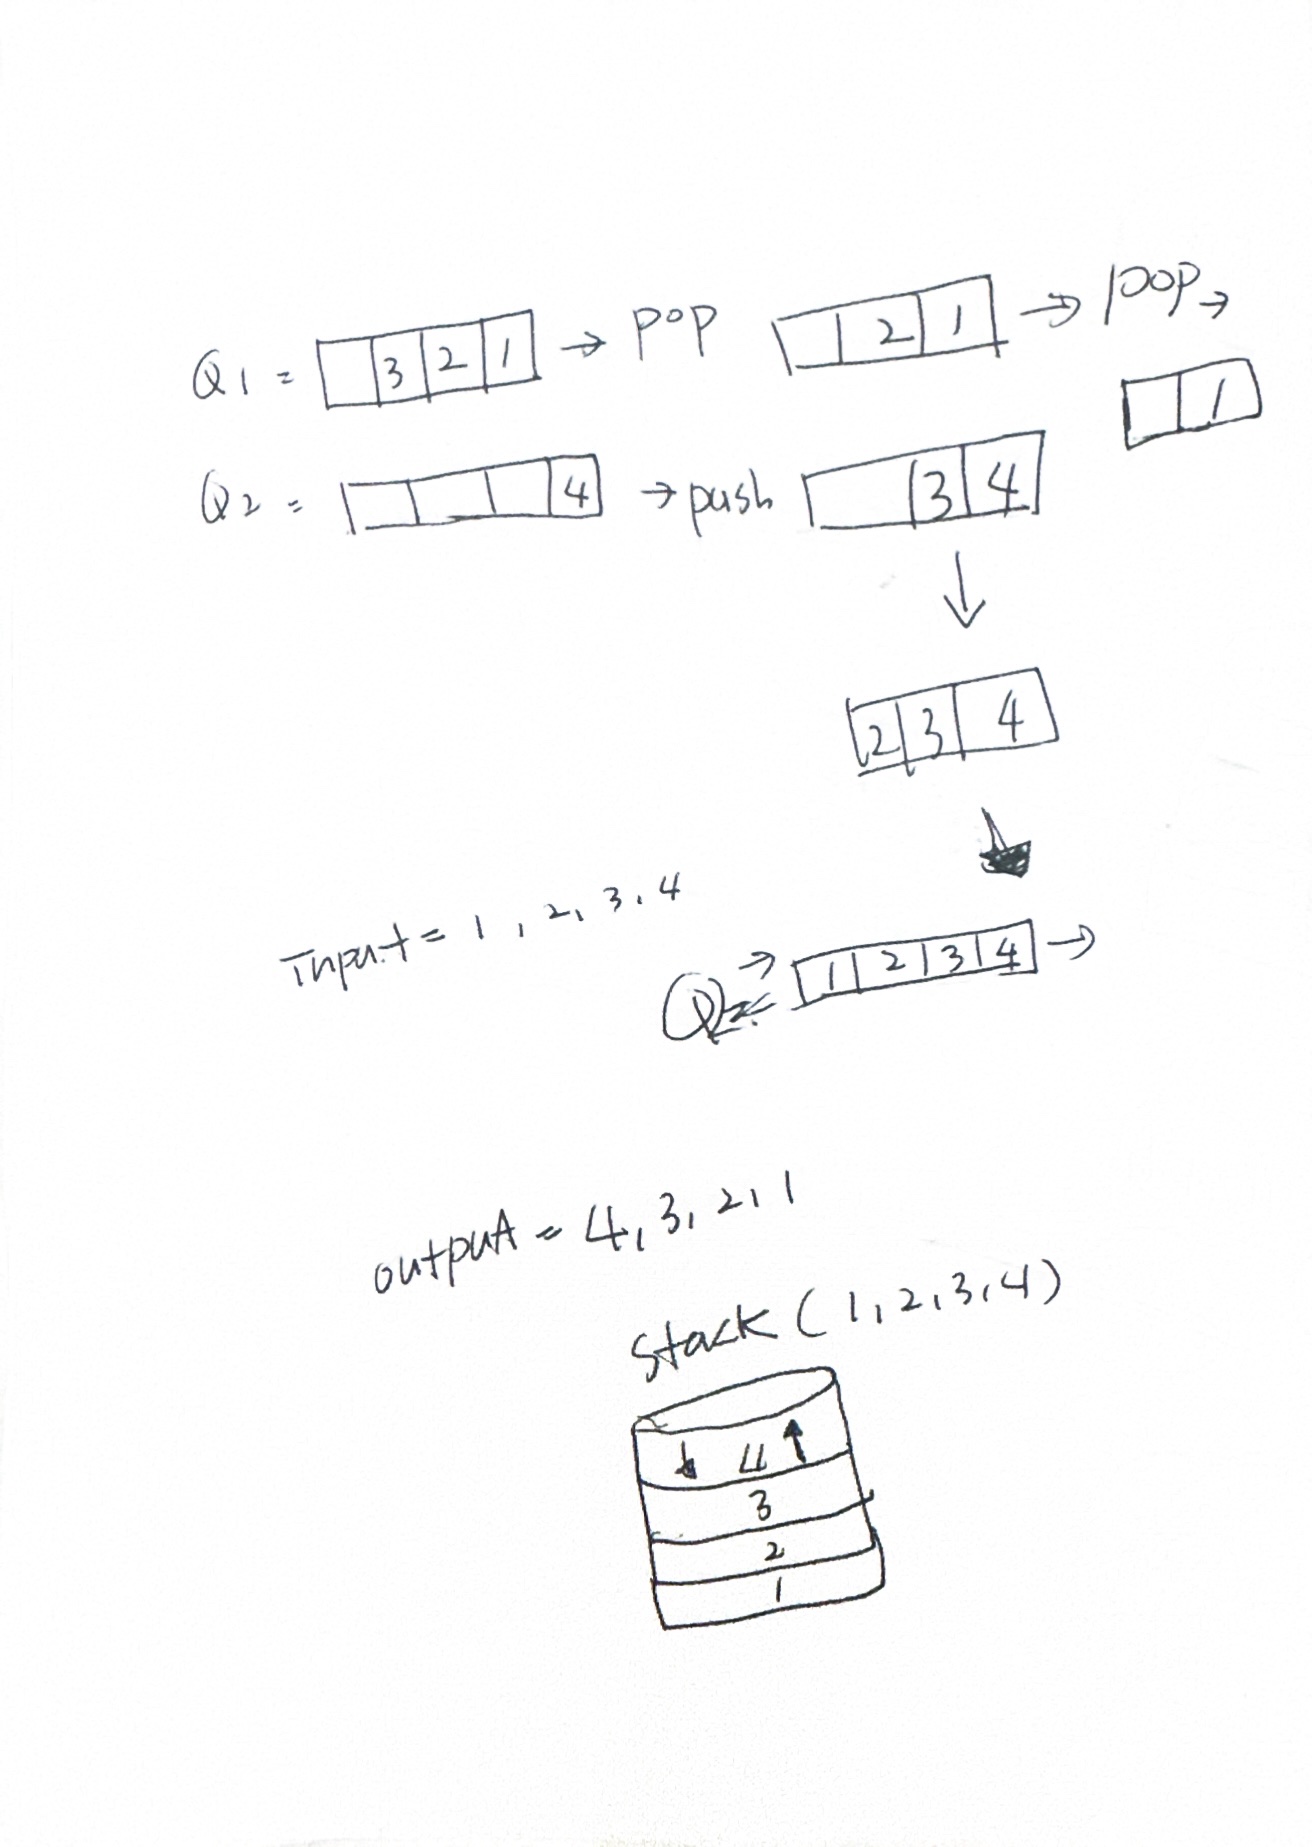 Q1 = 3 2 1 → pop 2 1 → pop →
1
Q2 = 4 → push 3 4
↓
2 3 4
Input = 1, 2, 3, 4
Q2 = → 1 2 3 4 →
output = 4, 3, 2, 1
stack (1, 2, 3, 4)
↓ 4 ↑
3
2
1